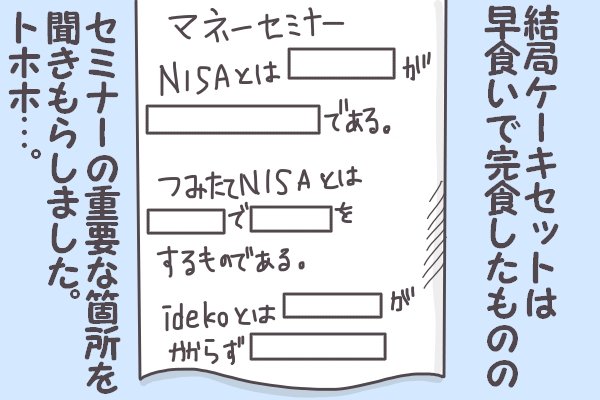 結局ケーキセットは
早食いで完食したものの
マネーセミナー
NISAとは が
である。
つみたてNISAとは
で を
するものである。
idekoとは が
かからず
セミナーの重要な箇所を
聞きもらしました。
トホホ…。